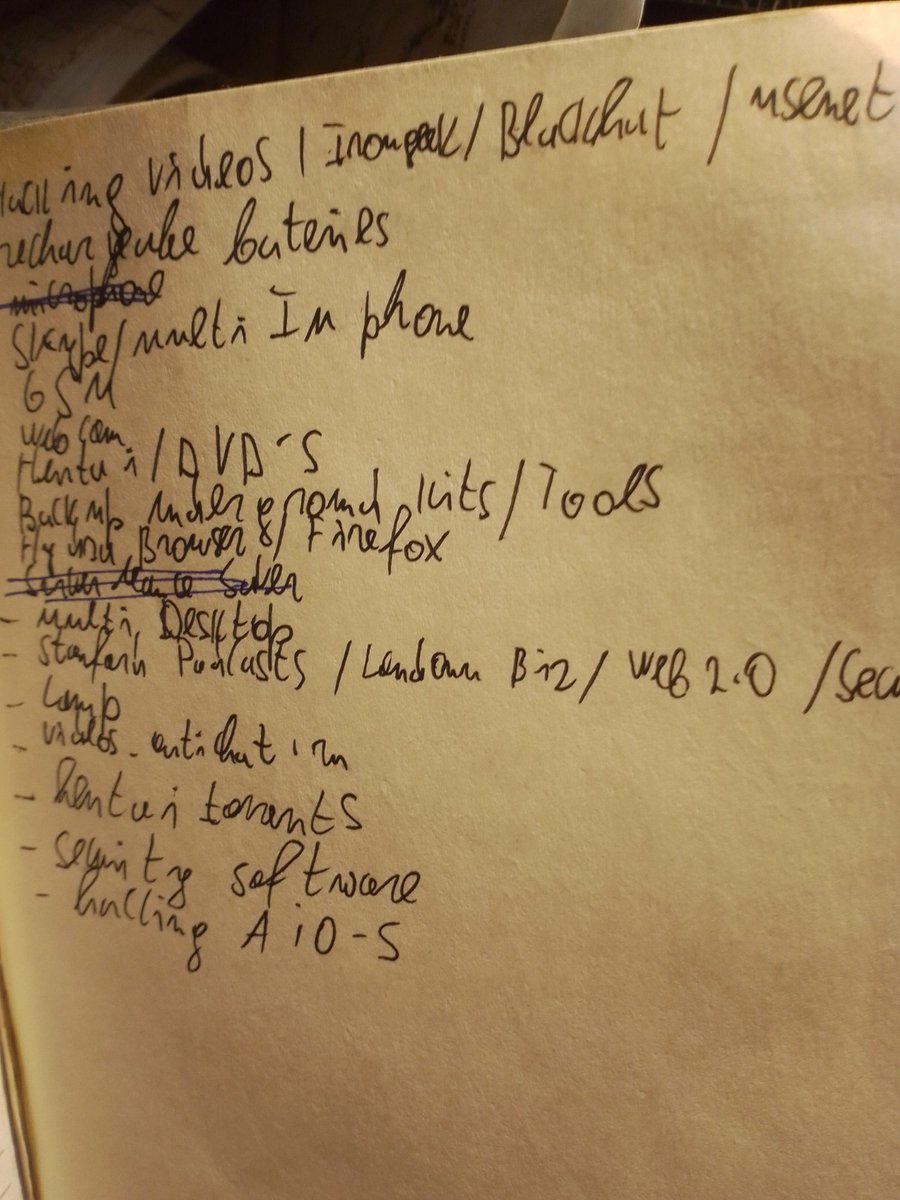 Hacking videos / Irongeek / Blackhat / usenet
rechargeable bateries
microphone
Skype/multi IM phone
GSM
web cam
Hentai / DVD'S
Backup underground kits / Tools
Browser / Firefox
- multi Desktop
- Stanford Podcasts / London Biz / Web 2.0 / Secu
- Lamp
- videos - antichat
- hentai torrents
- security software
- hacking AiO-S